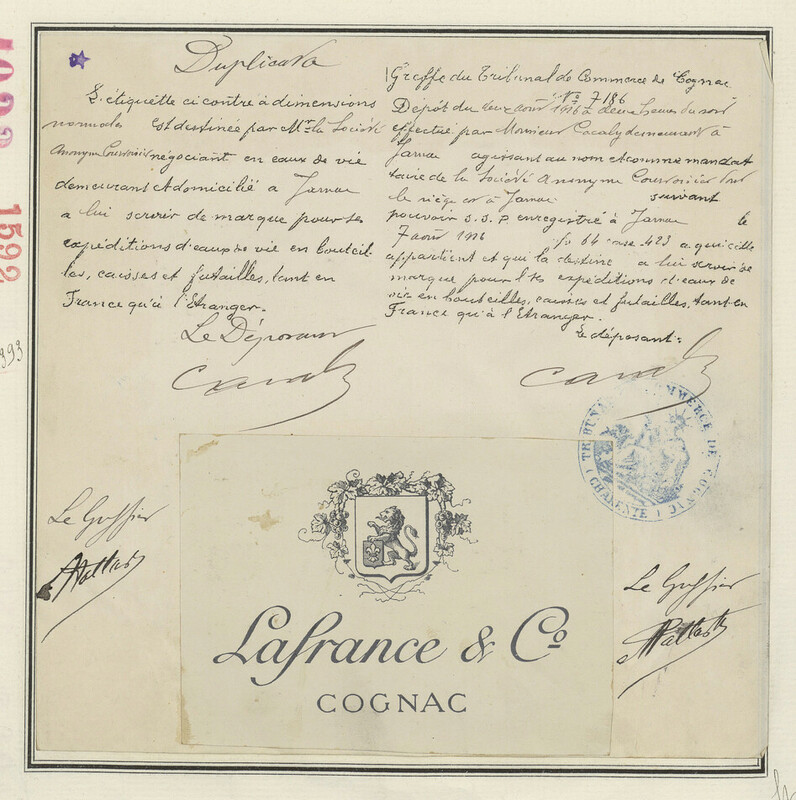 Duplicata
L'étiquette ci contre à dimensions
normales est destinée par Mr la Société
Anonyme Courvoisier négociant en eaux de vie
demeurant et domicilié à Jarnac
a lui servir de marque pour ses
expéditions d'eaux de vie en bouteil-
les, caisses et futailles, tant en
France qu'à l'Etranger.
Le Déposant
Greffe du Tribunal de Commerce de Cognac
No 7186
Dépôt du deux août 1916 à deux heures du soir
effectué par Monsieur demeurant à
Jarnac agissant au nom et comme mandat
taire de la Société Anonyme Courvoisier dont
le siège est à Jarnac suivant
pouvoir S.S.P. enregistré à Jarnac le
7 août 1916 fo 64 case 423 a qui cette
appartient et qui la destine a lui servir de
marque pour les expéditions d'eaux de
vie en bouteilles, caisses et futailles, tant en
France qu'à l'Etranger.
Le déposant:
1592
393
TRIBUNAL DE COMMERCE DE COGNAC
(CHARENTE)
Le Greffier
Le Greffier
Lafrance & Co
COGNAC